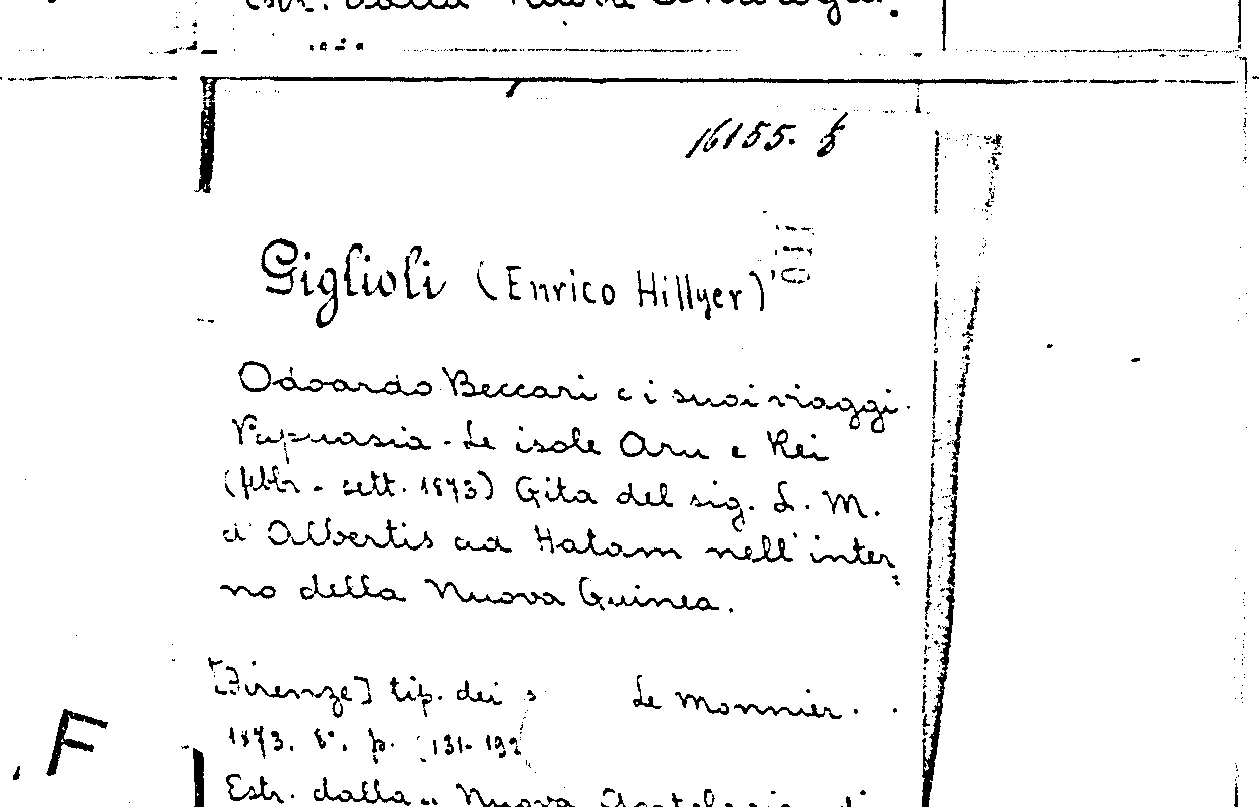 Estr. dalla Nuova Antologia.
16155. 8
Giglioli (Enrico Hillyer)
Odoardo Beccari e i suoi viaggi.
Papuasia - Le isole Aru e Kei
(febbr. - sett. 1873) Gita del sig. L. M.
d'Albertis ad Hatam nell'inter
no della Nuova Guinea.
[Firenze] tip. dei Le Monnier.
1873. 8°. p. 131-192
F
Estr. dalla „ Nuova Antologia di